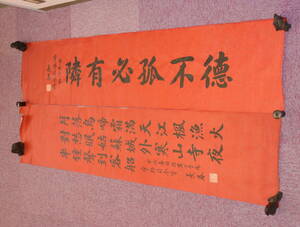 德不孤必有隣
月落烏啼霜滿天江楓漁火
對愁眠姑蘇城外寒山寺夜
半鐘聲到客船